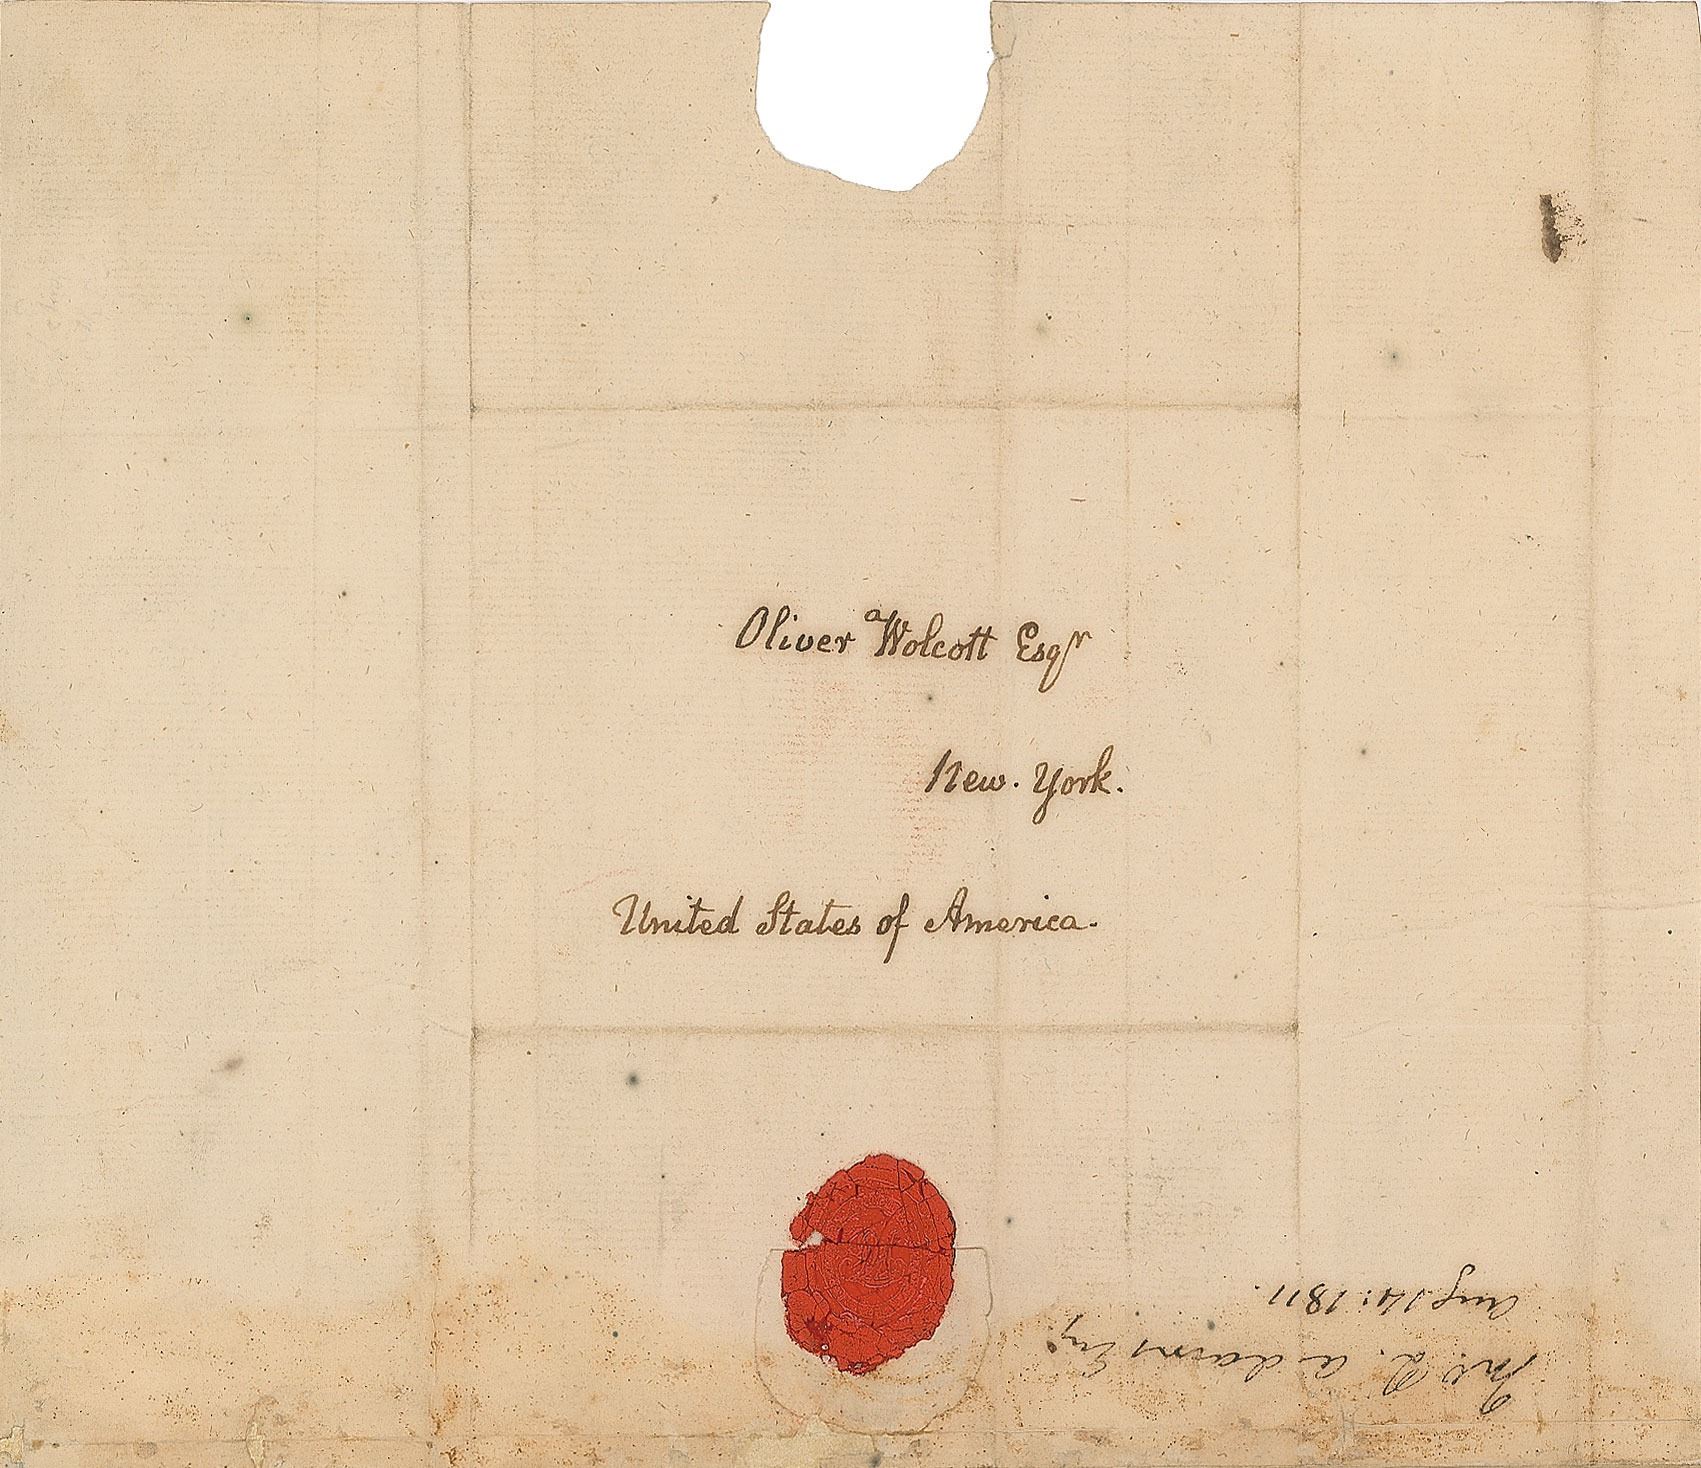 Oliver Wolcott Esqr
New-York.
United States of America.
Jno. Q. Adams Esq.
Aug. 14: 1811.